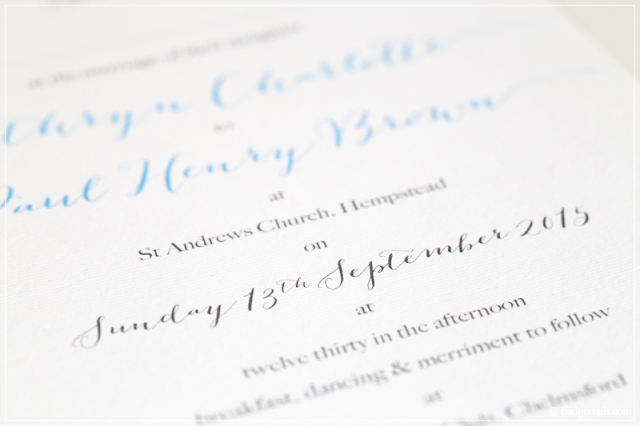 at the marriage of their daughter
Charlotte
to
Paul Henry Brown
at
St Andrews Church, Hempstead
on
Sunday 13th September 2015
at
twelve thirty in the afternoon
breakfast, dancing & merriment to follow
at
Chelmsford